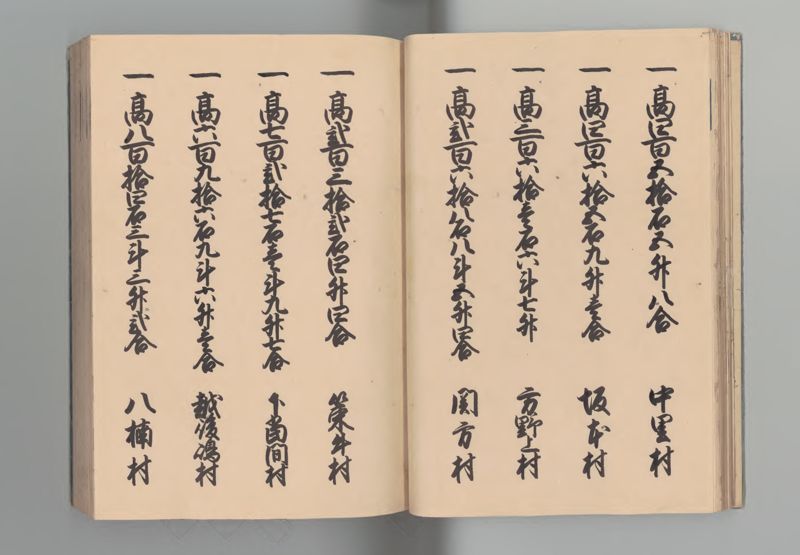 一 高四百五拾石五升八合 中里村
一 高四百六拾五石九升壱合 坂本村
一 高三百六拾壱石六斗七升 方野上村
一 高弐百六拾八石八斗五升四合 関方村
一 高弐百三拾弐石四升四合 策牛村
一 高七百弐拾七石壱斗九升七合 下當間村
一 高六百九拾六石九斗六升壱合 越後嶋村
一 高八百拾四石三斗三升弐合 八楠村